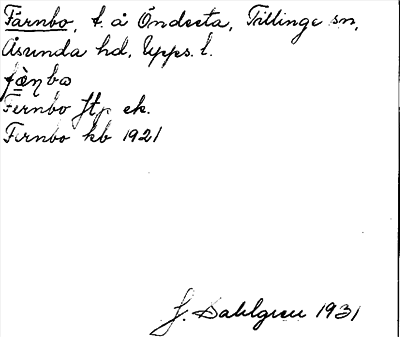 Färnbo, t. å Öndesta, Tillinge sn,
Åsunda hd, Upps. l.
fæ̀ηbω
Fernbo ftp ek.
Fernbo kb 1921
J. Dahlgren 1931